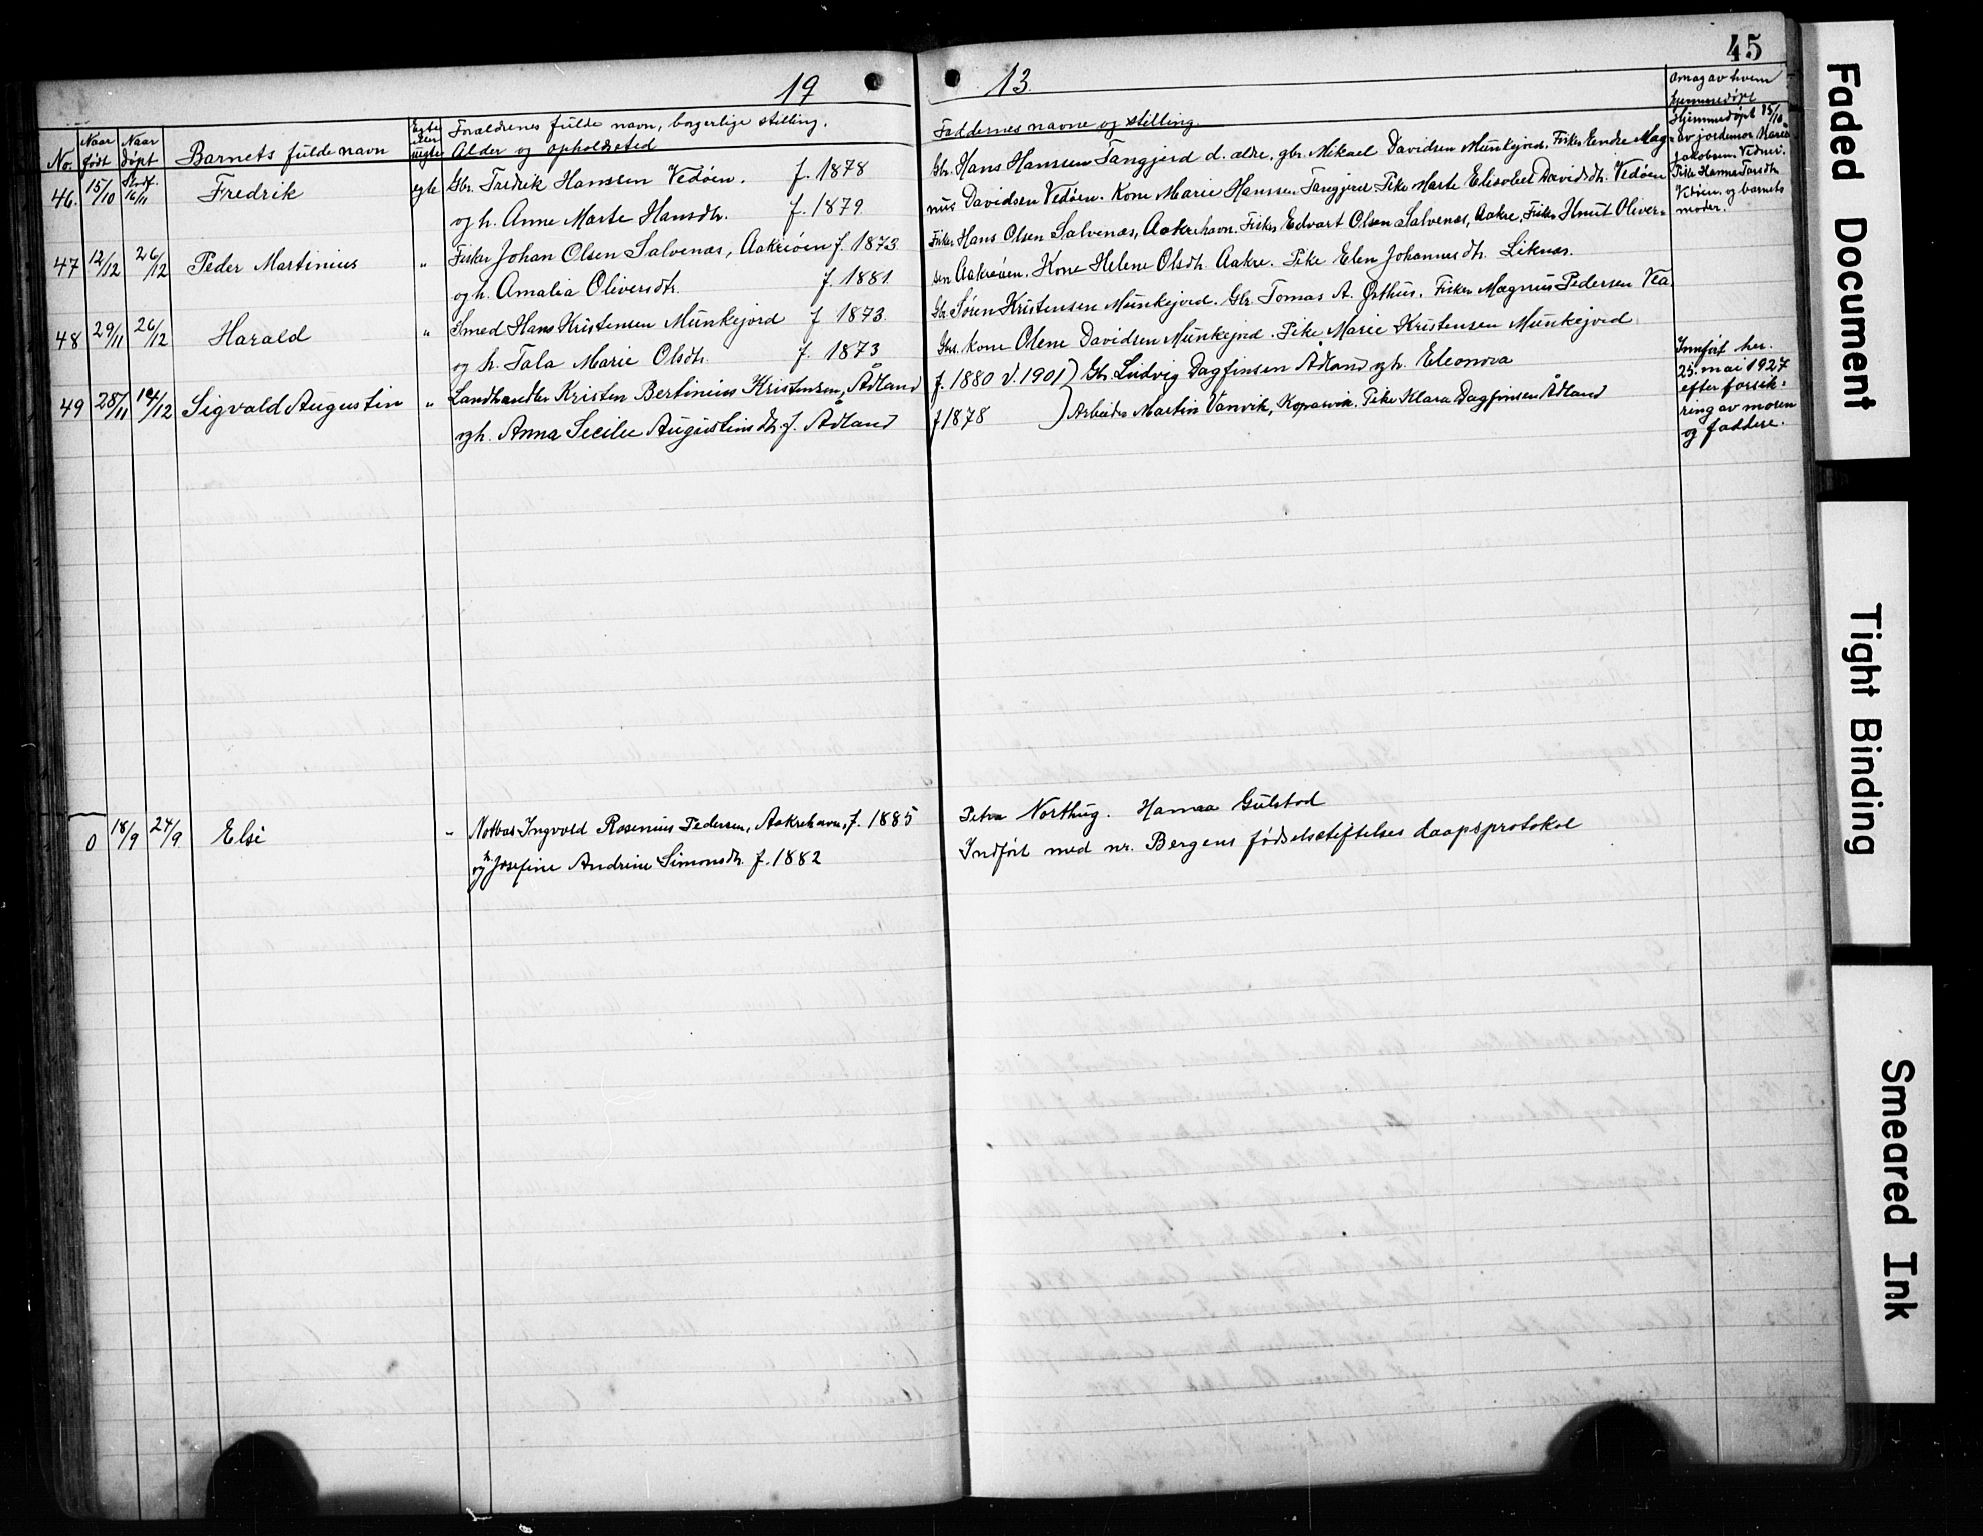 19
13.
45
No.
Naar født
Naar døpt
Barnets fulde navn
Egte eller uegte
Forældrenes fulde navn, borgerlige stilling.
Alder og opholdssted
Faddernes navne og stilling.
Omag av hvem hjemmedøpt
46. 15/10 16/11 Fredrik egte Gbr. Fredrik Hansen Vedøen. f. 1878
og h. Anne Marte Hansdtr. f. 1879
Gbr. Hans Hanssen Tangjerd d. ældre, gbr. Mikael Davidsen Munkejord. Fisker Endre Mag-
nus Davidsen Vedøen. Kone Marie Hanssen Tangjerd. Pike Marte Elisabet Davidsdtr. Vedøen
Hjemmedøpt 15/10
av jordemor Karen
Jakobsen. Vedøen.
Pike Hanna
Vedøen og barnets
moder.
47 12/12 26/12 Peder Martinius " Fisker Johan Olsen Salvenæs, Aakreøen f. 1873
og h. Amalia Oliversdtr. f. 1881
Fisker Hans Olsen Salvenæs, Aakrehavn. Fisker Edvart Olsen Salvenæs, Aakre, Fisker Knut Oliver-
sen Aakreøen. Kone Helene Olsdtr. Aakre. Pike Elen Johannesdtr. Liknæs.
48 29/11 26/12 Harald " Smed Hans Kristensen Munkejord f 1873
og h. Tala Marie Olsdtr. f. 1873
Gbr. Søren Kristensen Munkejord. Gbr. Tomas A. Ørthus. Fisker Magnus Pedersen Vea
Gbr. kone Olene Davidsen Munkejord. Pike Marie Kristensen Munkejord
49 28/11 14/12 Sigvald Augustin " Landhandler Kristen Bertinius Kristensen, Ådland
og h. Anna Secilie Augustinsdtr. f. Ådland
f. 1880 v. 1901) Gbr. Ludvig Dagfinsen Ådland og h. Eleonora
f 1878 ) Arbeider Martin Vanvik, Kopervik. Pike Klara Dagfinsen Ådland
Innført her.
25. mai 1927
efter forsik-
ring av moren
og faddere.
0 18/9 24/9 Else " Notbas Ingvald Rosenius Pedersen, Aakrehavn, f. 1885
og h. Josefine Andrine Simonsdtr. f. 1882
Petra Northug. Hanna Gulstad
Indført med nr. Bergens fødselsstiftelses daapsprotokol
Faded Document
Tight Binding
Smeared Ink